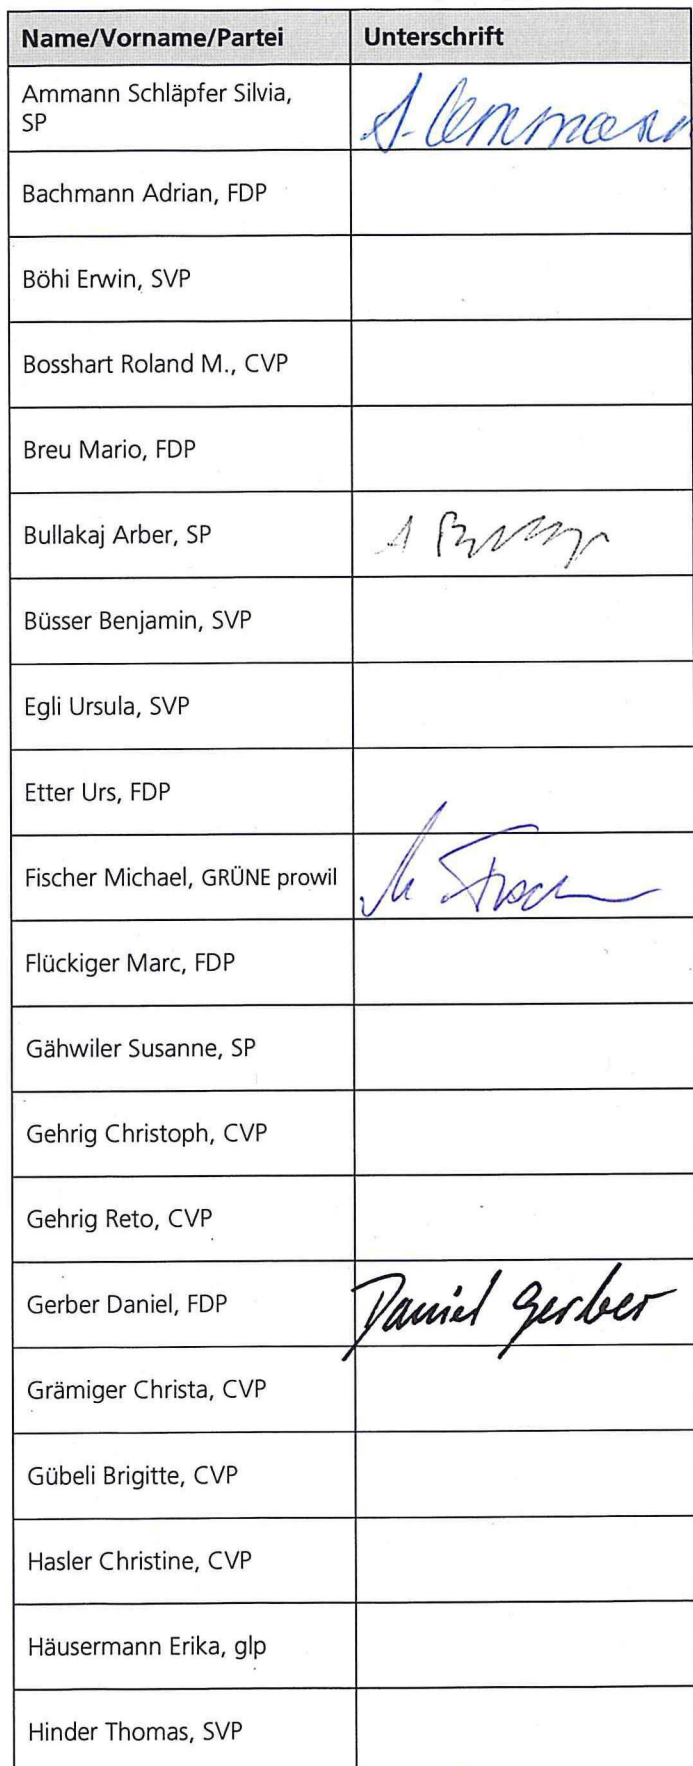 Name/Vorname/Partei Unterschrift
Ammann Schläpfer Silvia,
SP
S. Ammann
Bachmann Adrian, FDP
Böhi Erwin, SVP
Bosshart Roland M., CVP
Breu Mario, FDP
Bullakaj Arber, SP
Büsser Benjamin, SVP
Egli Ursula, SVP
Etter Urs, FDP
Fischer Michael, GRÜNE prowil M Fisch
Flückiger Marc, FDP
Gähwiler Susanne, SP
Gehrig Christoph, CVP
Gehrig Reto, CVP
Gerber Daniel, FDP Daniel Gerber
Grämiger Christa, CVP
Gübeli Brigitte, CVP
Hasler Christine, CVP
Häusermann Erika, glp
Hinder Thomas, SVP